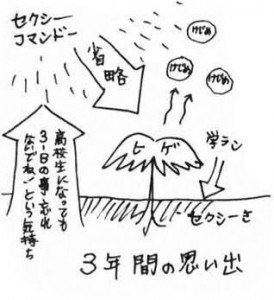 セクシー
コマンドー
省略
けじめ
けじめ
けじめ
高校生になっても
3-Iの事、忘れ
ないでね!という気持ち
ヒゲ
学ラン
セクシーさ
3年間の思い出